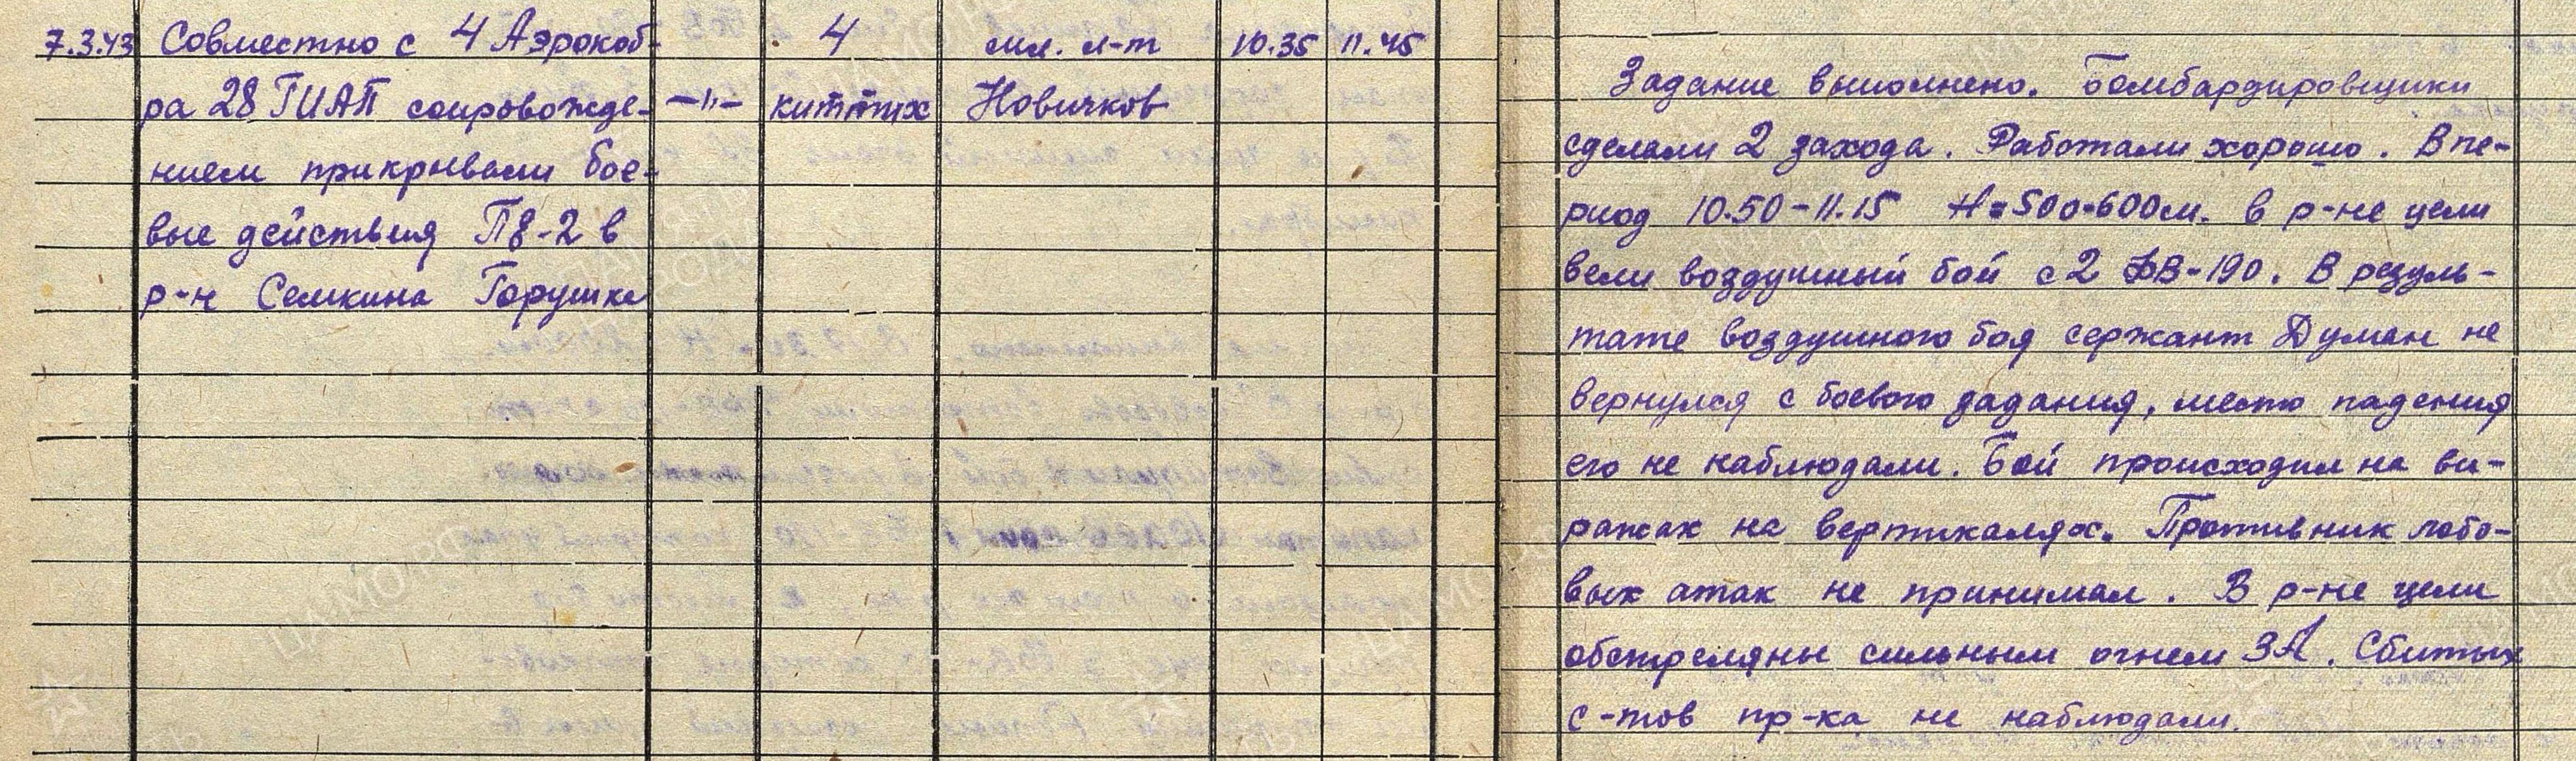 7.3.43 Совместно с 4 Аэрокоб- 4 мл. л-т 10.35 11.45
ра 28 ГИАП сопровожде- —"— киттих Новичков
нием прикрывали бое-
вые действия П8-2 в
р-н Семкина Горушка
Задание выполнено. Бомбардировщики
сделали 2 захода. Работали хорошо. В пе-
риод 10.50-11.15 Н=500-600м. в р-не цели
вели воздушный бой с 2 ФВ-190. В резуль-
тате воздушного боя сержант Думан не
вернулся с боевого задания, место падения
его не наблюдали. Бой происходил на ви-
ражах на вертикалях. Противник лобо-
вых атак не принимал. В р-не цели
обстреляны сильным огнем ЗА. Сбитых
с-тов пр-ка не наблюдали.